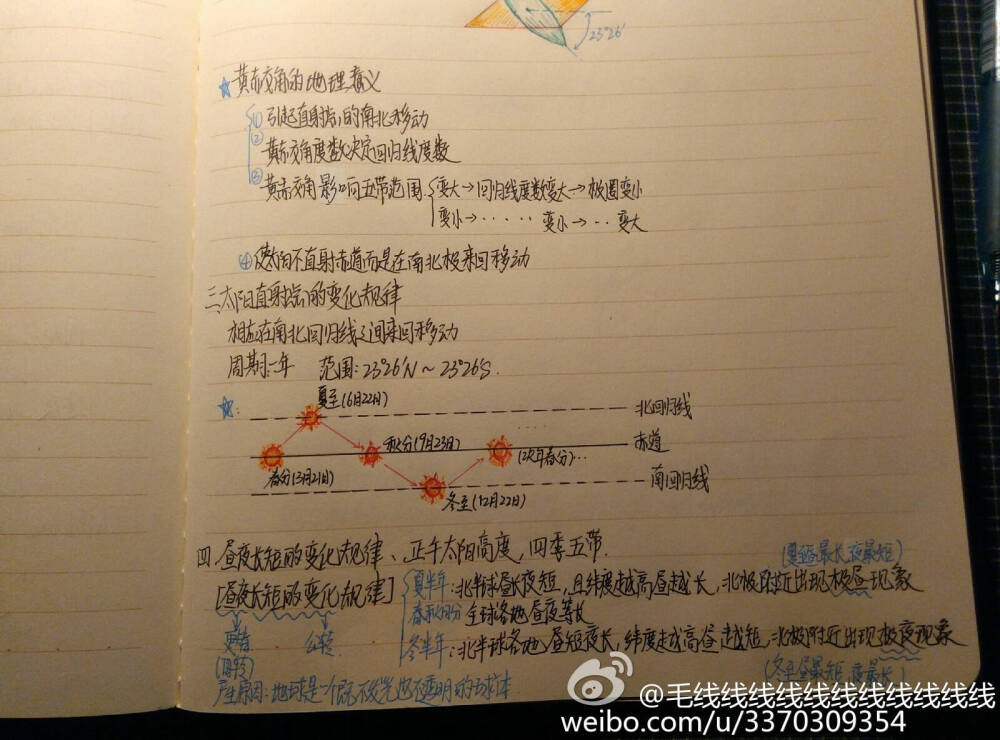 23°26'
☆黄赤交角的地理意义
① 引起直射点的南北移动
② 黄赤交角度数决定回归线度数
③ 黄赤交角影响五带范围 变大→回归线度数变大→极圈变小
变小→······变小→··变大
④使太阳不直射赤道而是在南北极来回移动
三、太阳直射点的变化规律
相应在南北回归线之间来回移动
周期:一年 范围:23°26'N~23°26'S.
☆:
夏至(6月22日)
北回归线
秋分(9月23日)
赤道
春分(3月21日)
(次年春分)···
南回归线
冬至(12月22日)
四.昼夜长短的变化规律、正午太阳高度,四季五带.
(夏至昼最长夜最短)
[昼夜长短的变化规律]
夏半年:北半球昼长夜短,且纬度越高昼越长,北极附近出现极昼现象
春秋分 全球各地昼夜等长
冬半年:北半球各地昼短夜长,纬度越高昼越短,北极附近出现极夜现象
更替 公转
(自转)
(冬至昼最短 夜最长)
产生原因:地球是一个既不发光也不透明的球体
@毛线线线线线线线线线线线线
weibo.com/u/3370309354